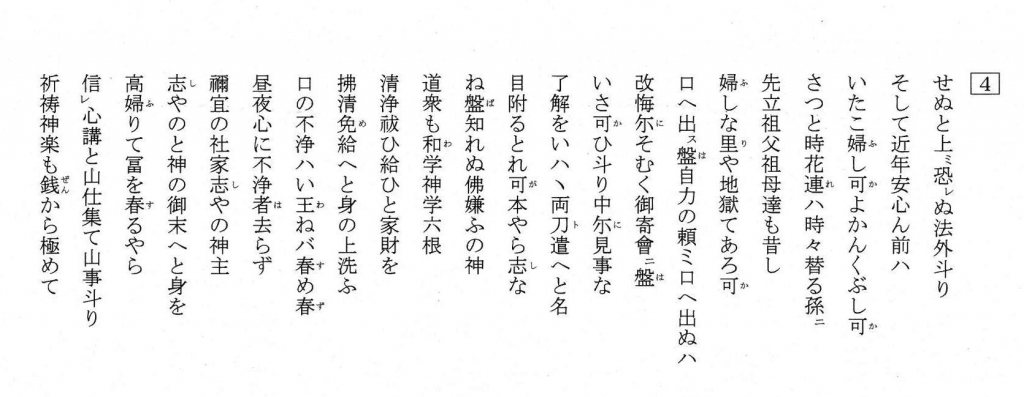 4
せぬと上ミ恐レぬ法外斗り
そして近年安心ん前ハ
いたこ婦(ふ)し可(か)よかんくぶし可(か)
さつと時花連(れ)ハ時々替る孫ニ
先立祖父祖母達も昔し
婦(ふ)しな里(り)や地獄てあろ可(か)
口へ出ス盤(は)自力の頼ミ口へ出ぬハ
改悔尓(に)そむく御寄會ニ盤(は)
いさ可(か)ひ斗り中尓(に)見事な
了解をいハヽ両刀(ト)遣へと名
目附るとれ可(が)本やら志(し)な
ね盤(ば)知れぬ佛嫌ふの神
道衆も和(わ)学神学六根
清浄祓ひ給ひと家財を
拂清免(め)給へと身の上洗ふ
口の不浄ハい王(わ)ねバ春(す)め春(ず)
昼夜心に不浄者(は)去らず
禰宜の社家志(し)やの神主
志(し)やのと神の御末へと身を
高婦(ふ)りて冨を春(す)るやら
信レ心講と山仕集て山事斗り
祈祷神楽も銭(ぜん)から極めて